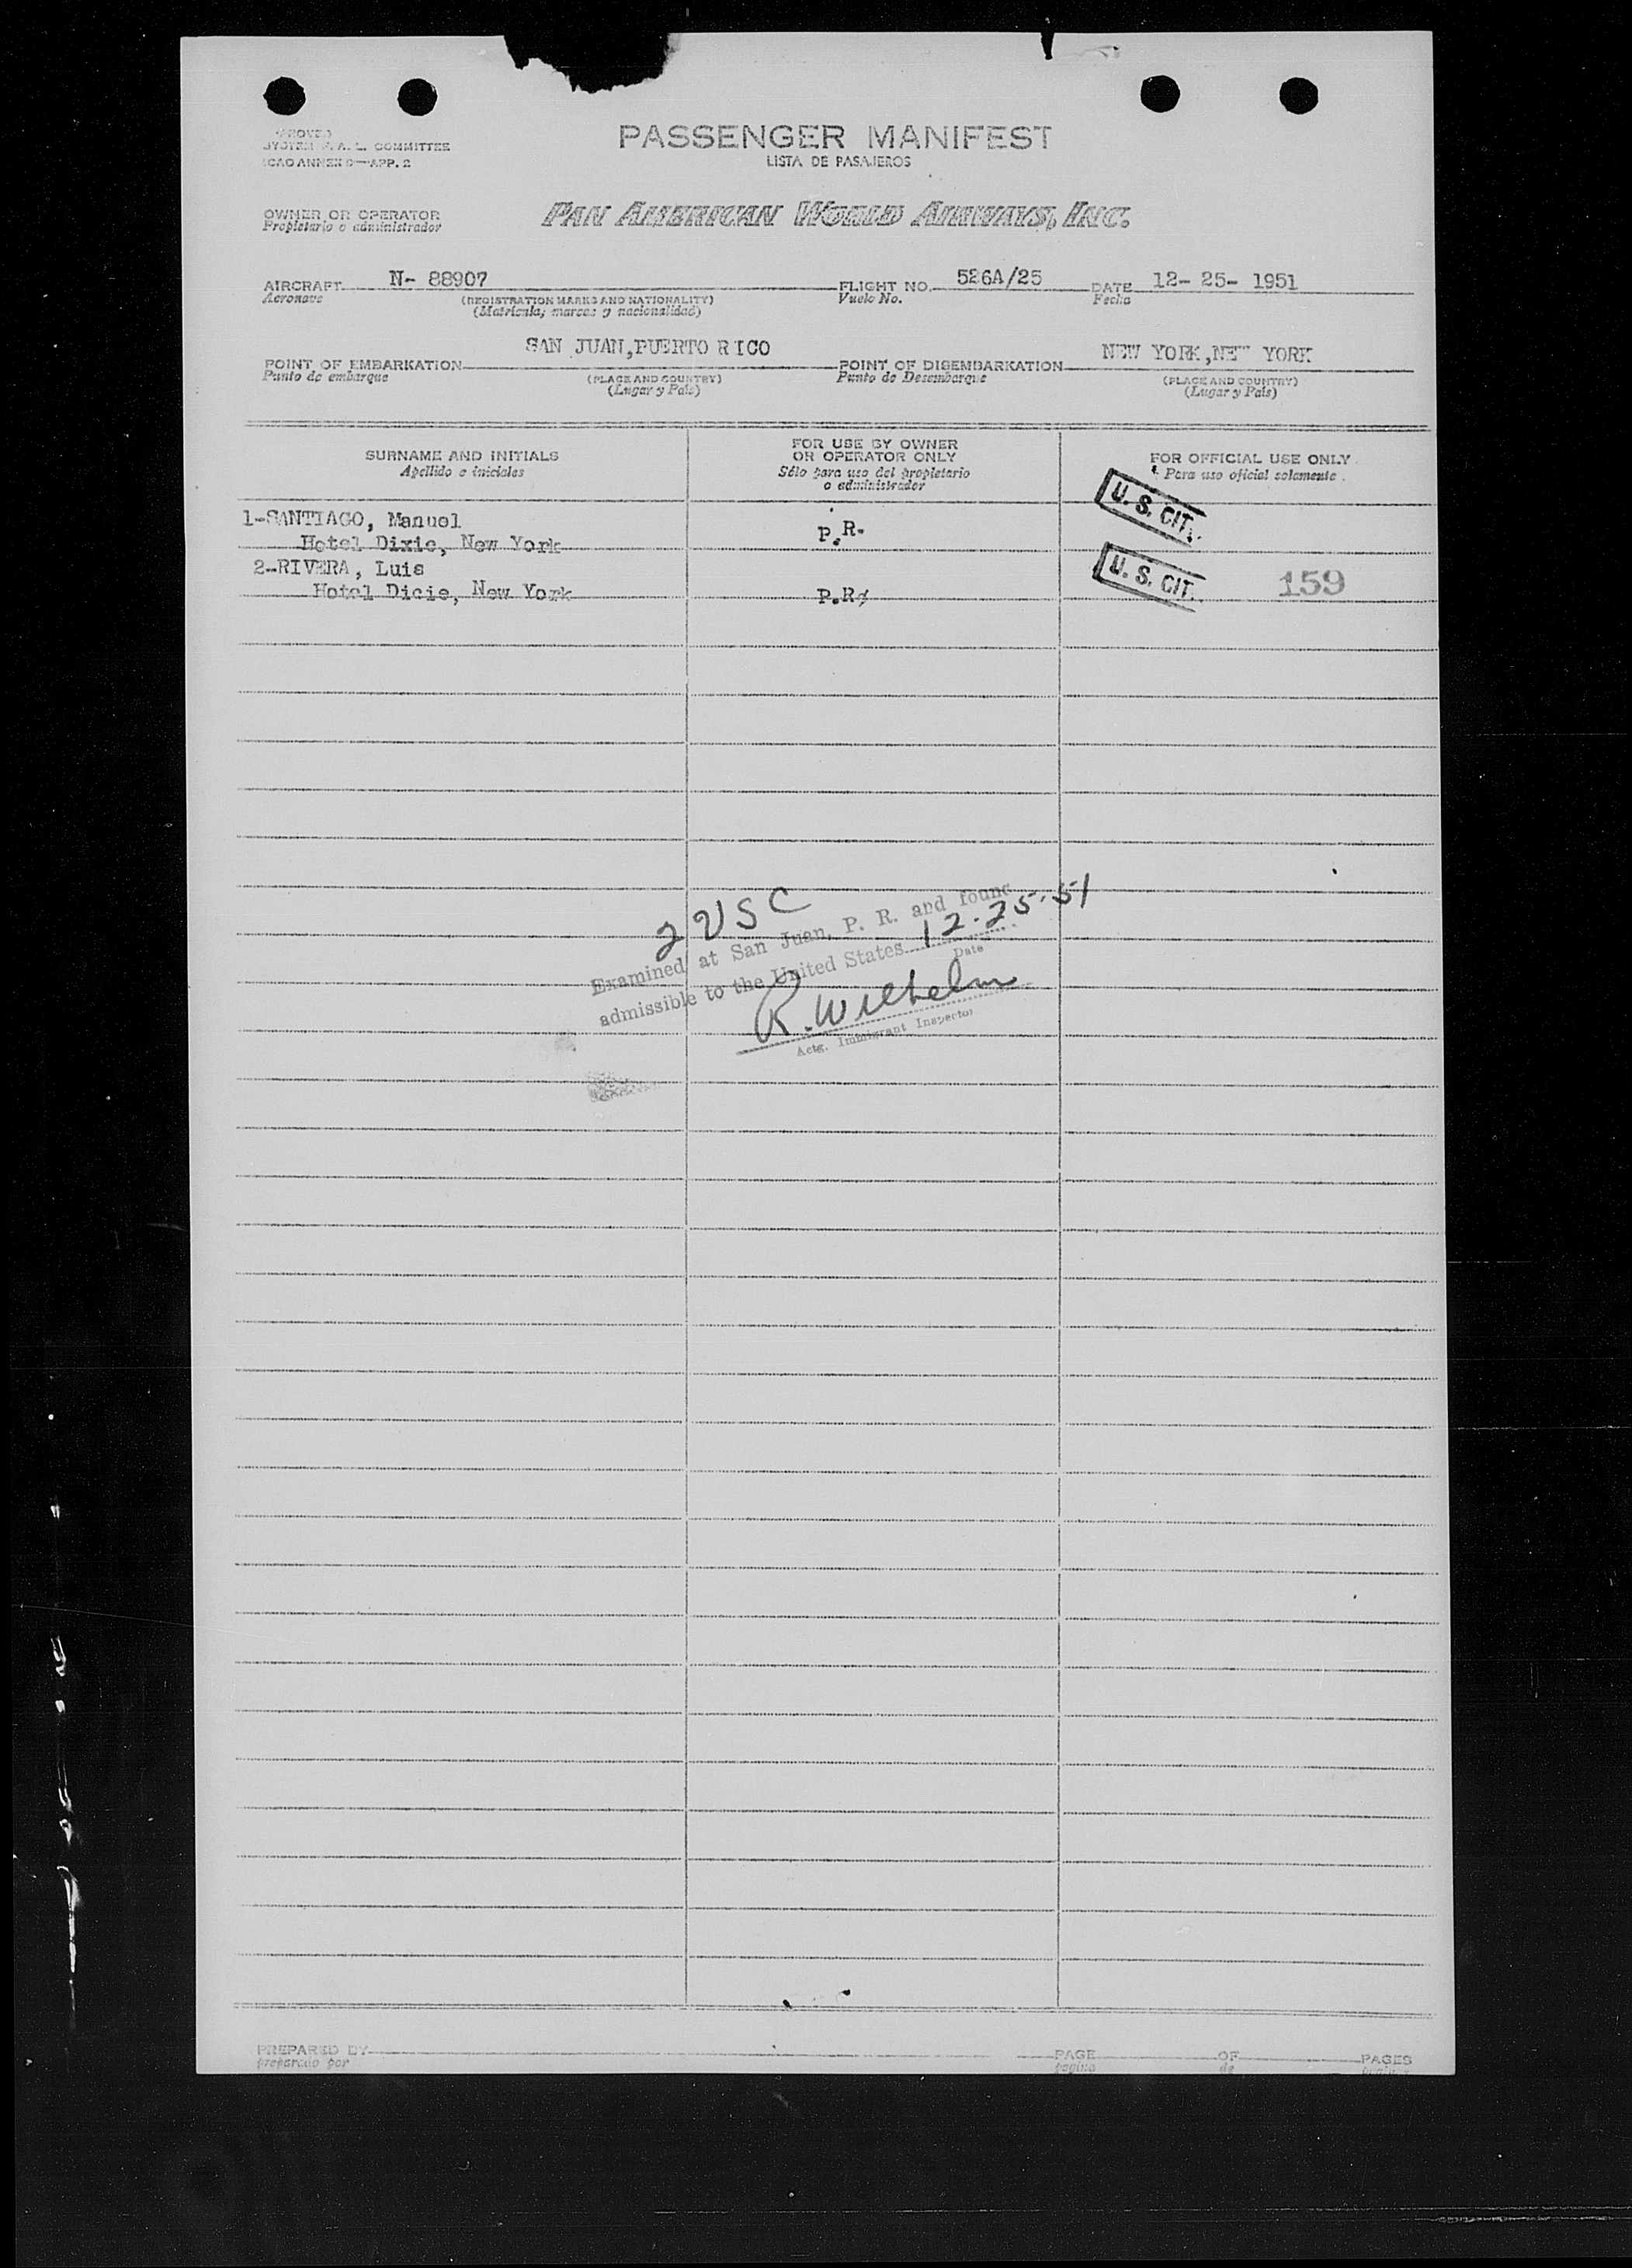 PASSENGER MANIFEST
LISTA DE PASAJEROS
SYSTEM F. A. L. COMMITTEE
ICAO ANNEX 9—APP. 2
OWNER OR OPERATOR
Propietario o administrador
PAN AMERICAN WORLD AIRWAYS, INC.
AIRCRAFT N- 88907 FLIGHT NO. 526A/25 DATE 12- 25- 1951
Aeronave (REGISTRATION MARKS AND NATIONALITY) Vuelo No. Fecha
(Matricula, marcas y nacionalidad)
SAN JUAN,PUERTO RICO NEW YORK,NEW YORK
POINT OF EMBARKATION POINT OF DISEMBARKATION
Punto de embarque (PLACE AND COUNTRY) Punto de Desembarque (PLACE AND COUNTRY)
(Lugar y País) (Lugar y País)
SURNAME AND INITIALS
Apellido e iniciales
FOR USE BY OWNER
OR OPERATOR ONLY
Sólo para uso del propietario
o administrador
FOR OFFICIAL USE ONLY
Para uso oficial solamente
1-SANTIAGO, Manuel
Hotel Dixie, New York P.R. U. S. CIT.
2-RIVERA, Luis
Hotel Dicie, New York P.R. U. S. CIT. 159
2 USC
Examined at San Juan, P. R. and found
admissible to the United States 12-25-51
Date
R. Wilhelm
Actg. Immigrant Inspector
PREPARED BY PAGE OF PAGES
preparado por pagina de